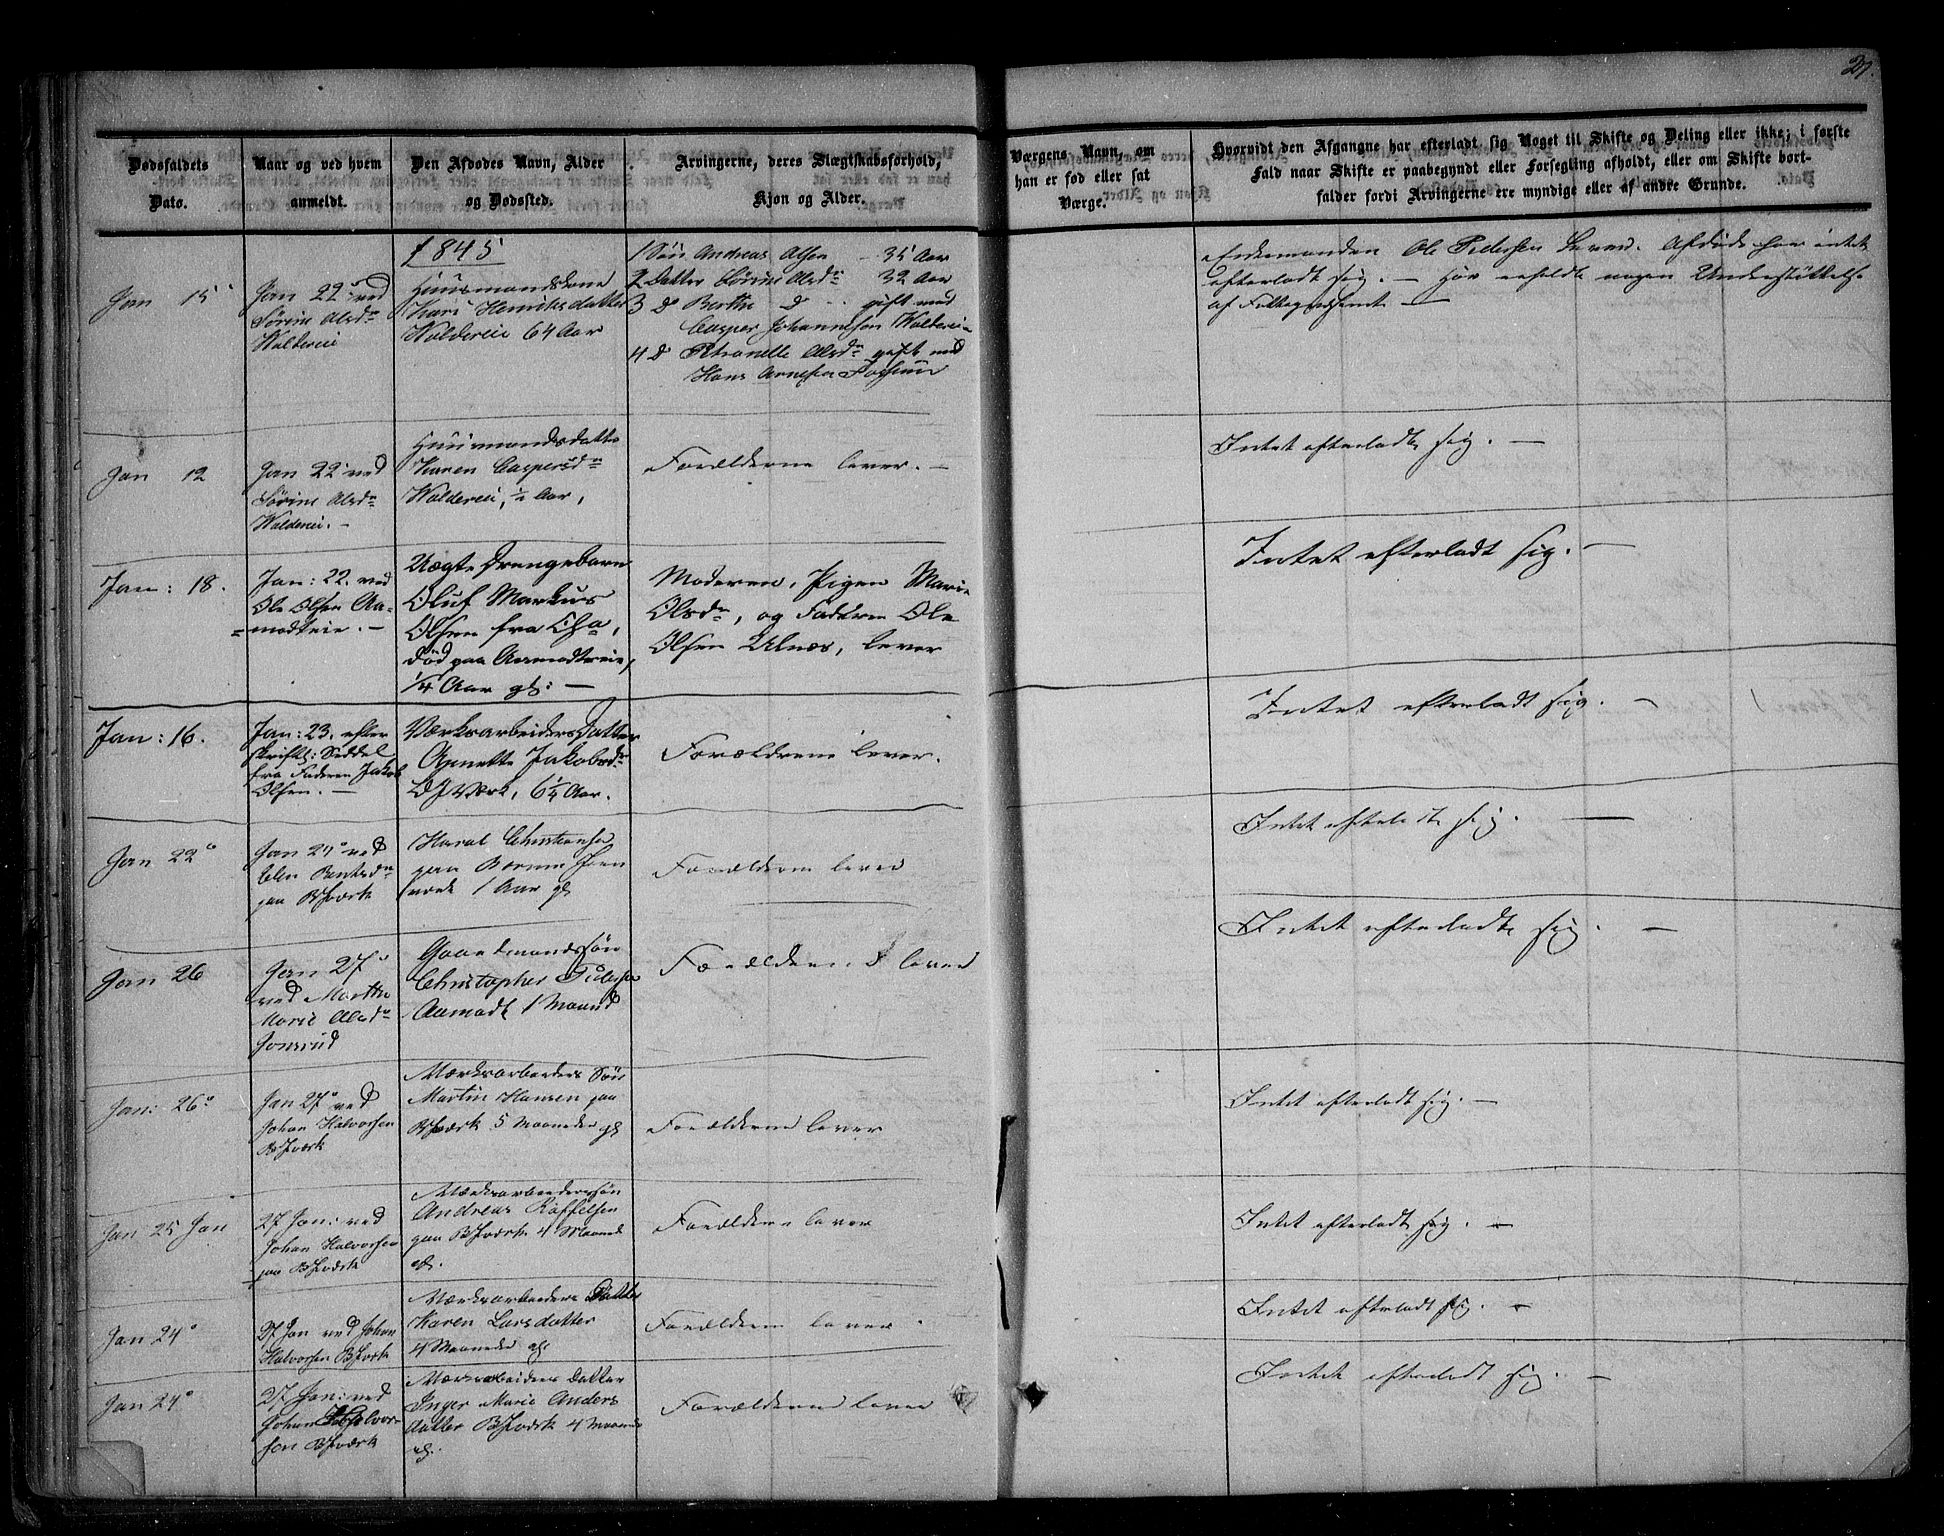 21.
Dødsfaldets
Dato.
Naar og ved hvem
anmeldt.
Den Afdødes Navn, Alder
og Dødssted.
Arvingerne, deres Slægtskabsforhold,
Kjøn og Alder.
Værgens Navn, om
han er fød eller sat
Værge.
Hvorvidt den Afgangne har efterladt sig Noget til Skifte og Deling eller ikke; i første
Fald naar Skifte er paabegyndt eller Forsegling afholdt, eller om Skifte bort-
falder fordi Arvingerne ere myndige eller af andre Grunde.
1845
Jan 15
Jan 22 ved
Sørine Olsdr
Waldereie
Huusmandskone
Kari Henriksdatter
Waldereie 64 Aar
1 Søn Andreas Olsen - 35 Aar
2 Datter Sørine Olsdr 32 Aar
3 do Berthe do gift med
Casper Johannesen Waldereie
4 do Petronelle Olsdr gift med
Hans Arnesen Fossum
Enkemanden Ole Pedersen Lever. Afdøde har intet
efterladt sig. - Har erholdt nogen Understøttelse
af
Jan 12
Jan 22 ved
Sørine Olsdr
Waldereie. -
Huusmandsdatter
Karen Caspersdr
Waldereie, ½ Aar,
Forældrene lever. -
Intet efterladt sig. -
Jan: 18.
Jan: 22. ved
Ole Olsen Aa-
=modteie. -
Uægte Drengebarn
Oluf Markus
Olsen fra
død paa Aamodteie,
¼ Aar gl: -
Moderen, Pigen Marie
Olsdr, og Faderen Ole
Olsen Ulnæs, lever
Intet efterladt sig. -
Jan: 16.
Jan: 23. efter
skriftl: Seddel
fra Faderen Jakob
Olsen. -
Værksarbeiders Datter
Agnette Jakobsdr
Værk, 6¼ Aar.
Forældrene lever.
Intet efterladt sig. -
Jan 22
Jan 27 ved
Elen Berntsdr
paa B Jværk
Haral Christensen
paa Bærums Jern
værk 1 Aar gl
Forældrene lever
Intet efterladt sig. -
Jan 26
Jan 27
ved Marthe
Marie Olsdr
Jonsrud
Gaardmandssøn
Christopher Pedersen
Aamodt 1 Maaned
Forældrene lever
Intet efterladt sig. -
Jan: 26
Jan 27 ved
Johan Halvorsen
B Jværk
Værksarbeiders Søn
Martin Hansen paa
B Jværk 5 Maaneder gl
Forældrene lever
Intet efterladt sig. -
Jan 25 Jan
27 Jan: ved
Johan Halvorsen
paa B Jværk
Værksarbeiderssøn
Andreas Røffelsen
paa B Jværk 4 Maaneder
gl.
Forældrene lever
Intet efterladt sig. -
Jan 24
27 Jan ved Johan
Halvorsen B Jværk
Værksarbeiders Datter
Karen Larsdatter
4 Maaneder gl.
Forældrene lever
Intet efterladt sig. -
Jan 24
27 Jan: ved
Johan Halvor-
sen B Jværk
Værksarbeiders Datter
Inger Marie Anders
datter B Jværk 4 Maaneder
gl.
Forældrene lever
Intet efterladt sig. -